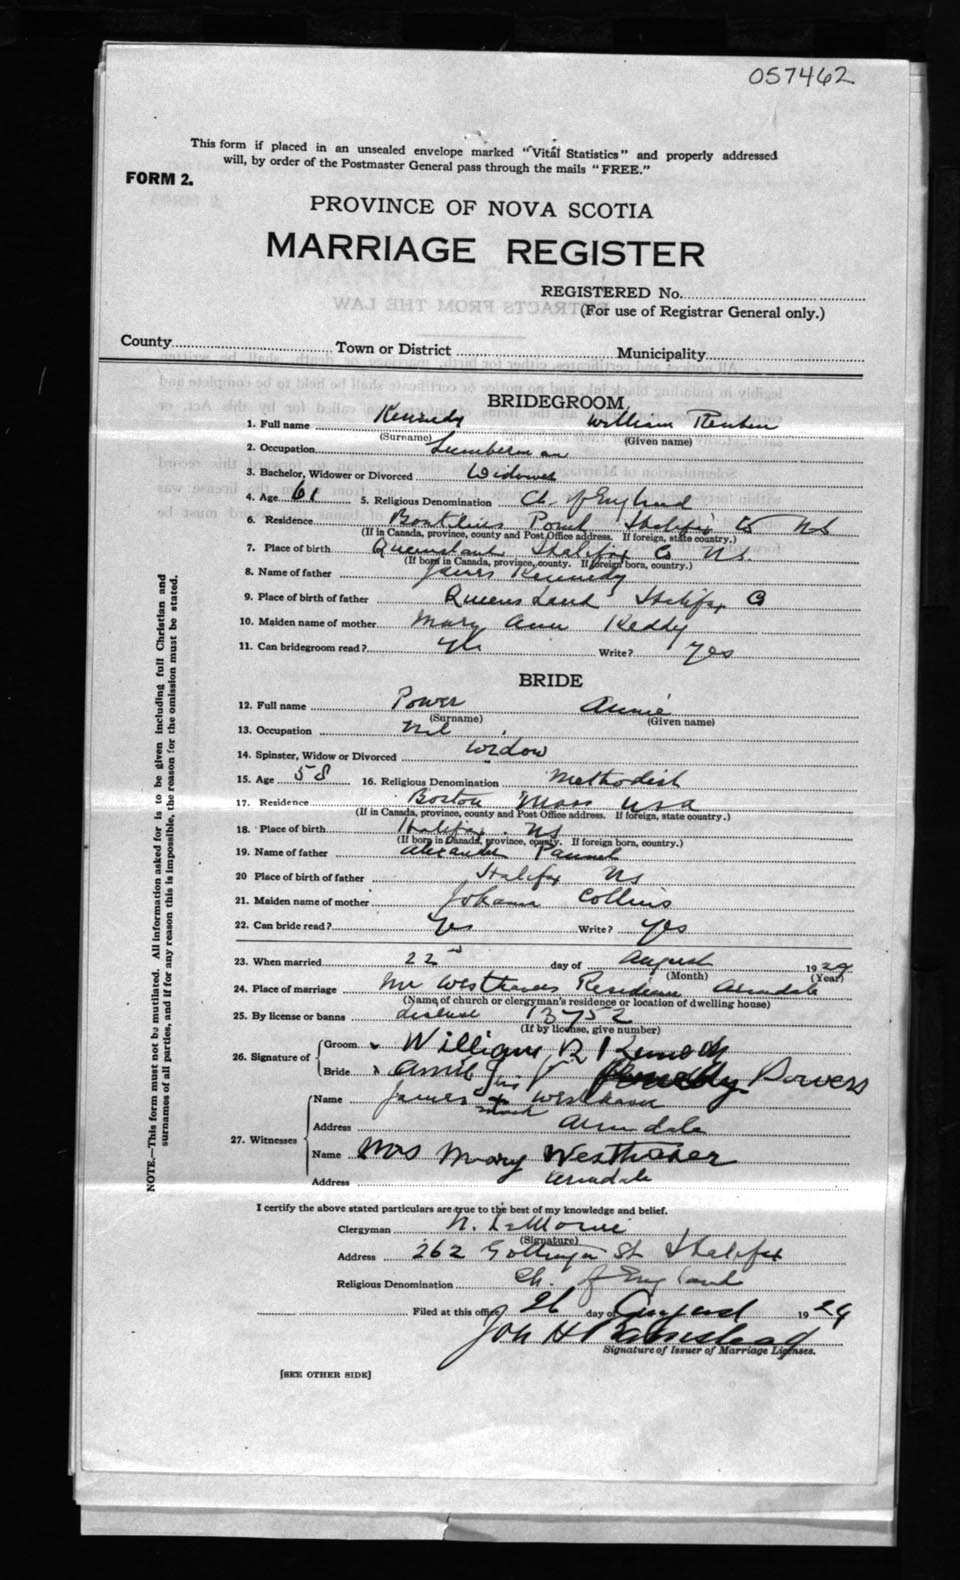 057462
This form if placed in an unsealed envelope marked "Vital Statistics" and properly addressed
will, by order of the Postmaster General pass through the mails "FREE."
FORM 2.
PROVINCE OF NOVA SCOTIA
MARRIAGE REGISTER
REGISTERED No.
(For use of Registrar General only.)
County Town or District Municipality
BRIDEGROOM
1. Full name Kennedy William Reuben
(Surname) (Given name)
2. Occupation Lumberman
3. Bachelor, Widower or Divorced Widower
4. Age 61 5. Religious Denomination Ch. of England
6. Residence Point Halifax Co NS
(If in Canada, province, county and Post Office address. If foreign, state country.)
7. Place of birth Queensland Halifax Co NS.
(If born in Canada, province, county. If foreign born, country.)
8. Name of father James Kennedy
9. Place of birth of father Queensland Halifax Co
10. Maiden name of mother Mary Ann Keddy
11. Can bridegroom read? Yes Write? Yes
BRIDE
12. Full name Power Annie
(Surname) (Given name)
13. Occupation Nil
14. Spinster, Widow or Divorced Widow
15. Age 58 16. Religious Denomination Methodist
17. Residence Boston Mass USA
(If in Canada, province, county and Post Office address. If foreign, state country.)
18. Place of birth Halifax. NS
(If born in Canada, province, county. If foreign born, country.)
19. Name of father Alexander
20 Place of birth of father Halifax NS
21. Maiden name of mother Johanna Collins
22. Can bride read? Yes Write? Yes
23. When married 22nd day of August 1929
(Month) (Year)
24. Place of marriage Mr Westhavers Residence Armdale
(Name of church or clergyman's residence or location of dwelling house)
25. By license or banns License 13752
(If by license, give number)
26. Signature of Groom William R Kennedy
Bride Annie Powers
27. Witnesses Name James his x mark Westhaver
Address Armdale
Name Mrs Mary Westhaver
Address Armdale
I certify the above stated particulars are true to the best of my knowledge and belief.
Clergyman N. LeMoine
(Signature)
Address 262 Gottingen St Halifax
Religious Denomination Ch. of England
Filed at this office 26 day of August 1929
Jon H Barnstead
Signature of Issuer of Marriage Licenses.
[SEE OTHER SIDE]
NOTE.—This form must not be mutilated. All information asked for is to be given including full Christian and
surnames of all parties, and if for any reason this is impossible, the reason for the omission must be stated.